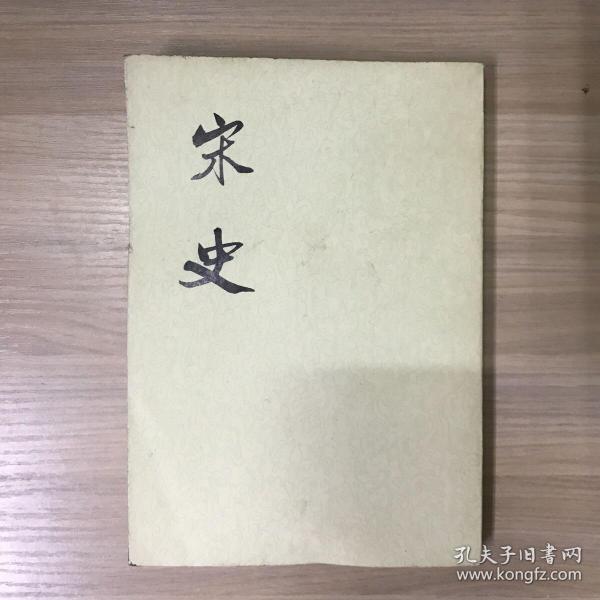 宋史
孔夫子旧書网
www.kongfz.com